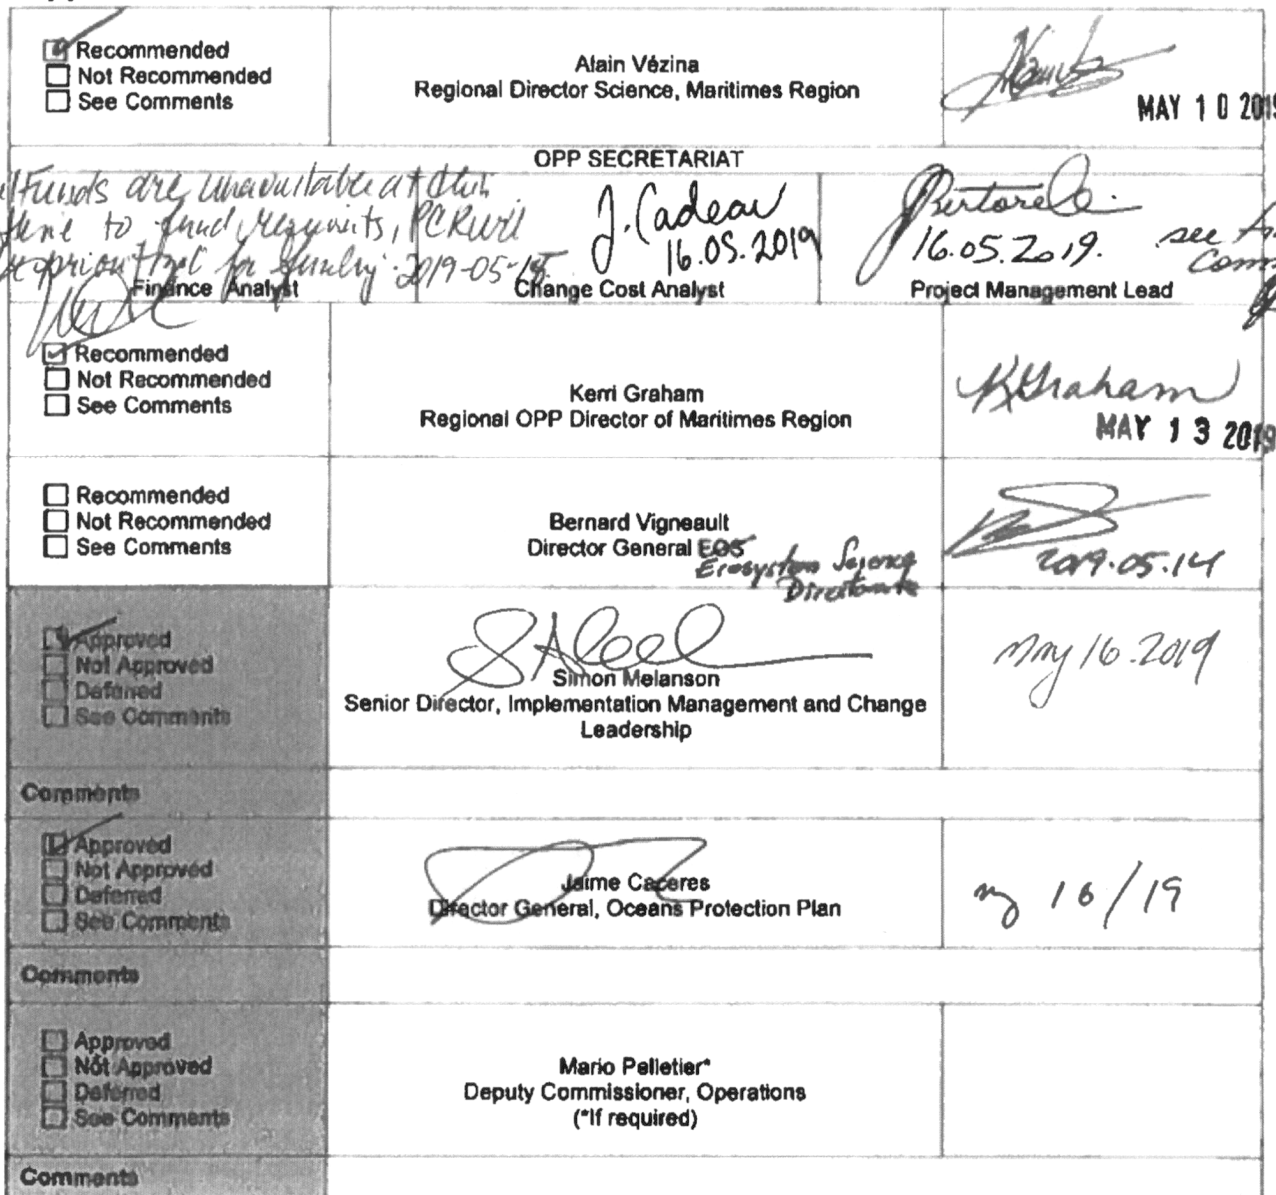 Recommended
Not Recommended
See Comments
Alain Vézina
Regional Director Science, Maritimes Region
MAY 1 0 2019
OPP SECRETARIAT
Funds are unavailable at this
time to fund requests, PCR will
be prioritized for funding. 2019-05-15
Finance Analyst
J. Cadeau
16.05.2019
Change Cost Analyst
16.05.2019.
see
Project Management Lead
Recommended
Not Recommended
See Comments
Kerri Graham
Regional OPP Director of Maritimes Region
KGraham
MAY 1 3 2019
Recommended
Not Recommended
See Comments
Bernard Vigneault
Director General EOS
Ecosystem Science
Directorate
2019.05.14
Approved
Not Approved
Deferred
See Comments
Simon Melanson
Senior Director, Implementation Management and Change
Leadership
May 16.2019
Comments
Approved
Not Approved
Deferred
See Comments
Jaime Caceres
Director General, Oceans Protection Plan
my 16/19
Comments
Approved
Not Approved
Deferred
See Comments
Mario Pelletier*
Deputy Commissioner, Operations
(*If required)
Comments